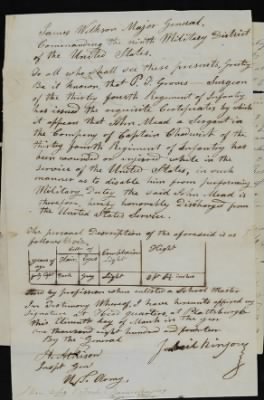 James Wilkson Major General,
Commanding the ninth Military District
of the United States.
To all who shall see these presents, Greeting
Be it known that P. D. Groves - Surgeon
of the thirty fourth Regiment of Infantry
has issued the requisite Certificates by which
it appears that John Mead a Sergeant in
the Company of Captain Chadwick of the
thirty fourth Regiment of Infantry has
been wounded or injured while in the
service of the United States, in such
manner as to disable him from preforming
Military Duty the said John Mead is
therefore, hereby honorably discharged from
the United States Service.
The personal Description of the aforesaid is as
follows Viz.
years of age Hair Eyes Complexion Hight
Dark Grey Light inches
and by profession when enlisted a School Master
In Testimony Whereof, I have hereunto affixed my
Signature at Head quarters, at Plattsburgh
this Eleventh day of March in the year
one thousand eight hundred and fourteen
By the General
H. Atkison
Inspt Genl
U.S. Army.